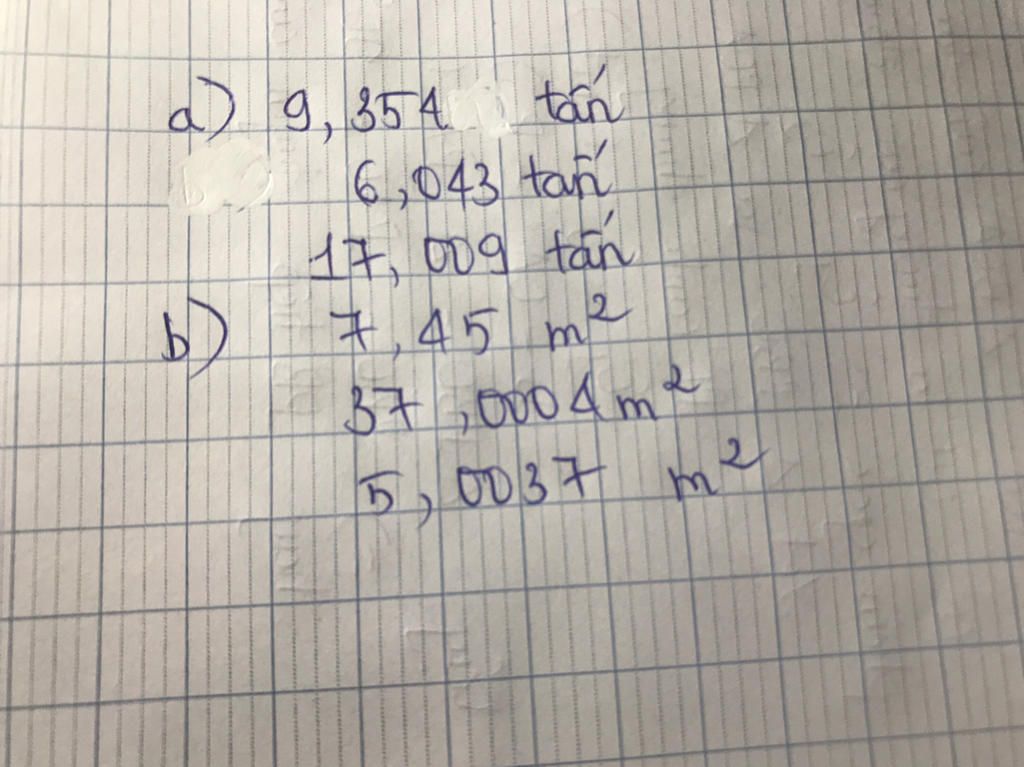 a) 9,354 tấn
6,043 tấn
17,009 tấn
b) 7,45 m²
37,0004 m²
5,0037 m²